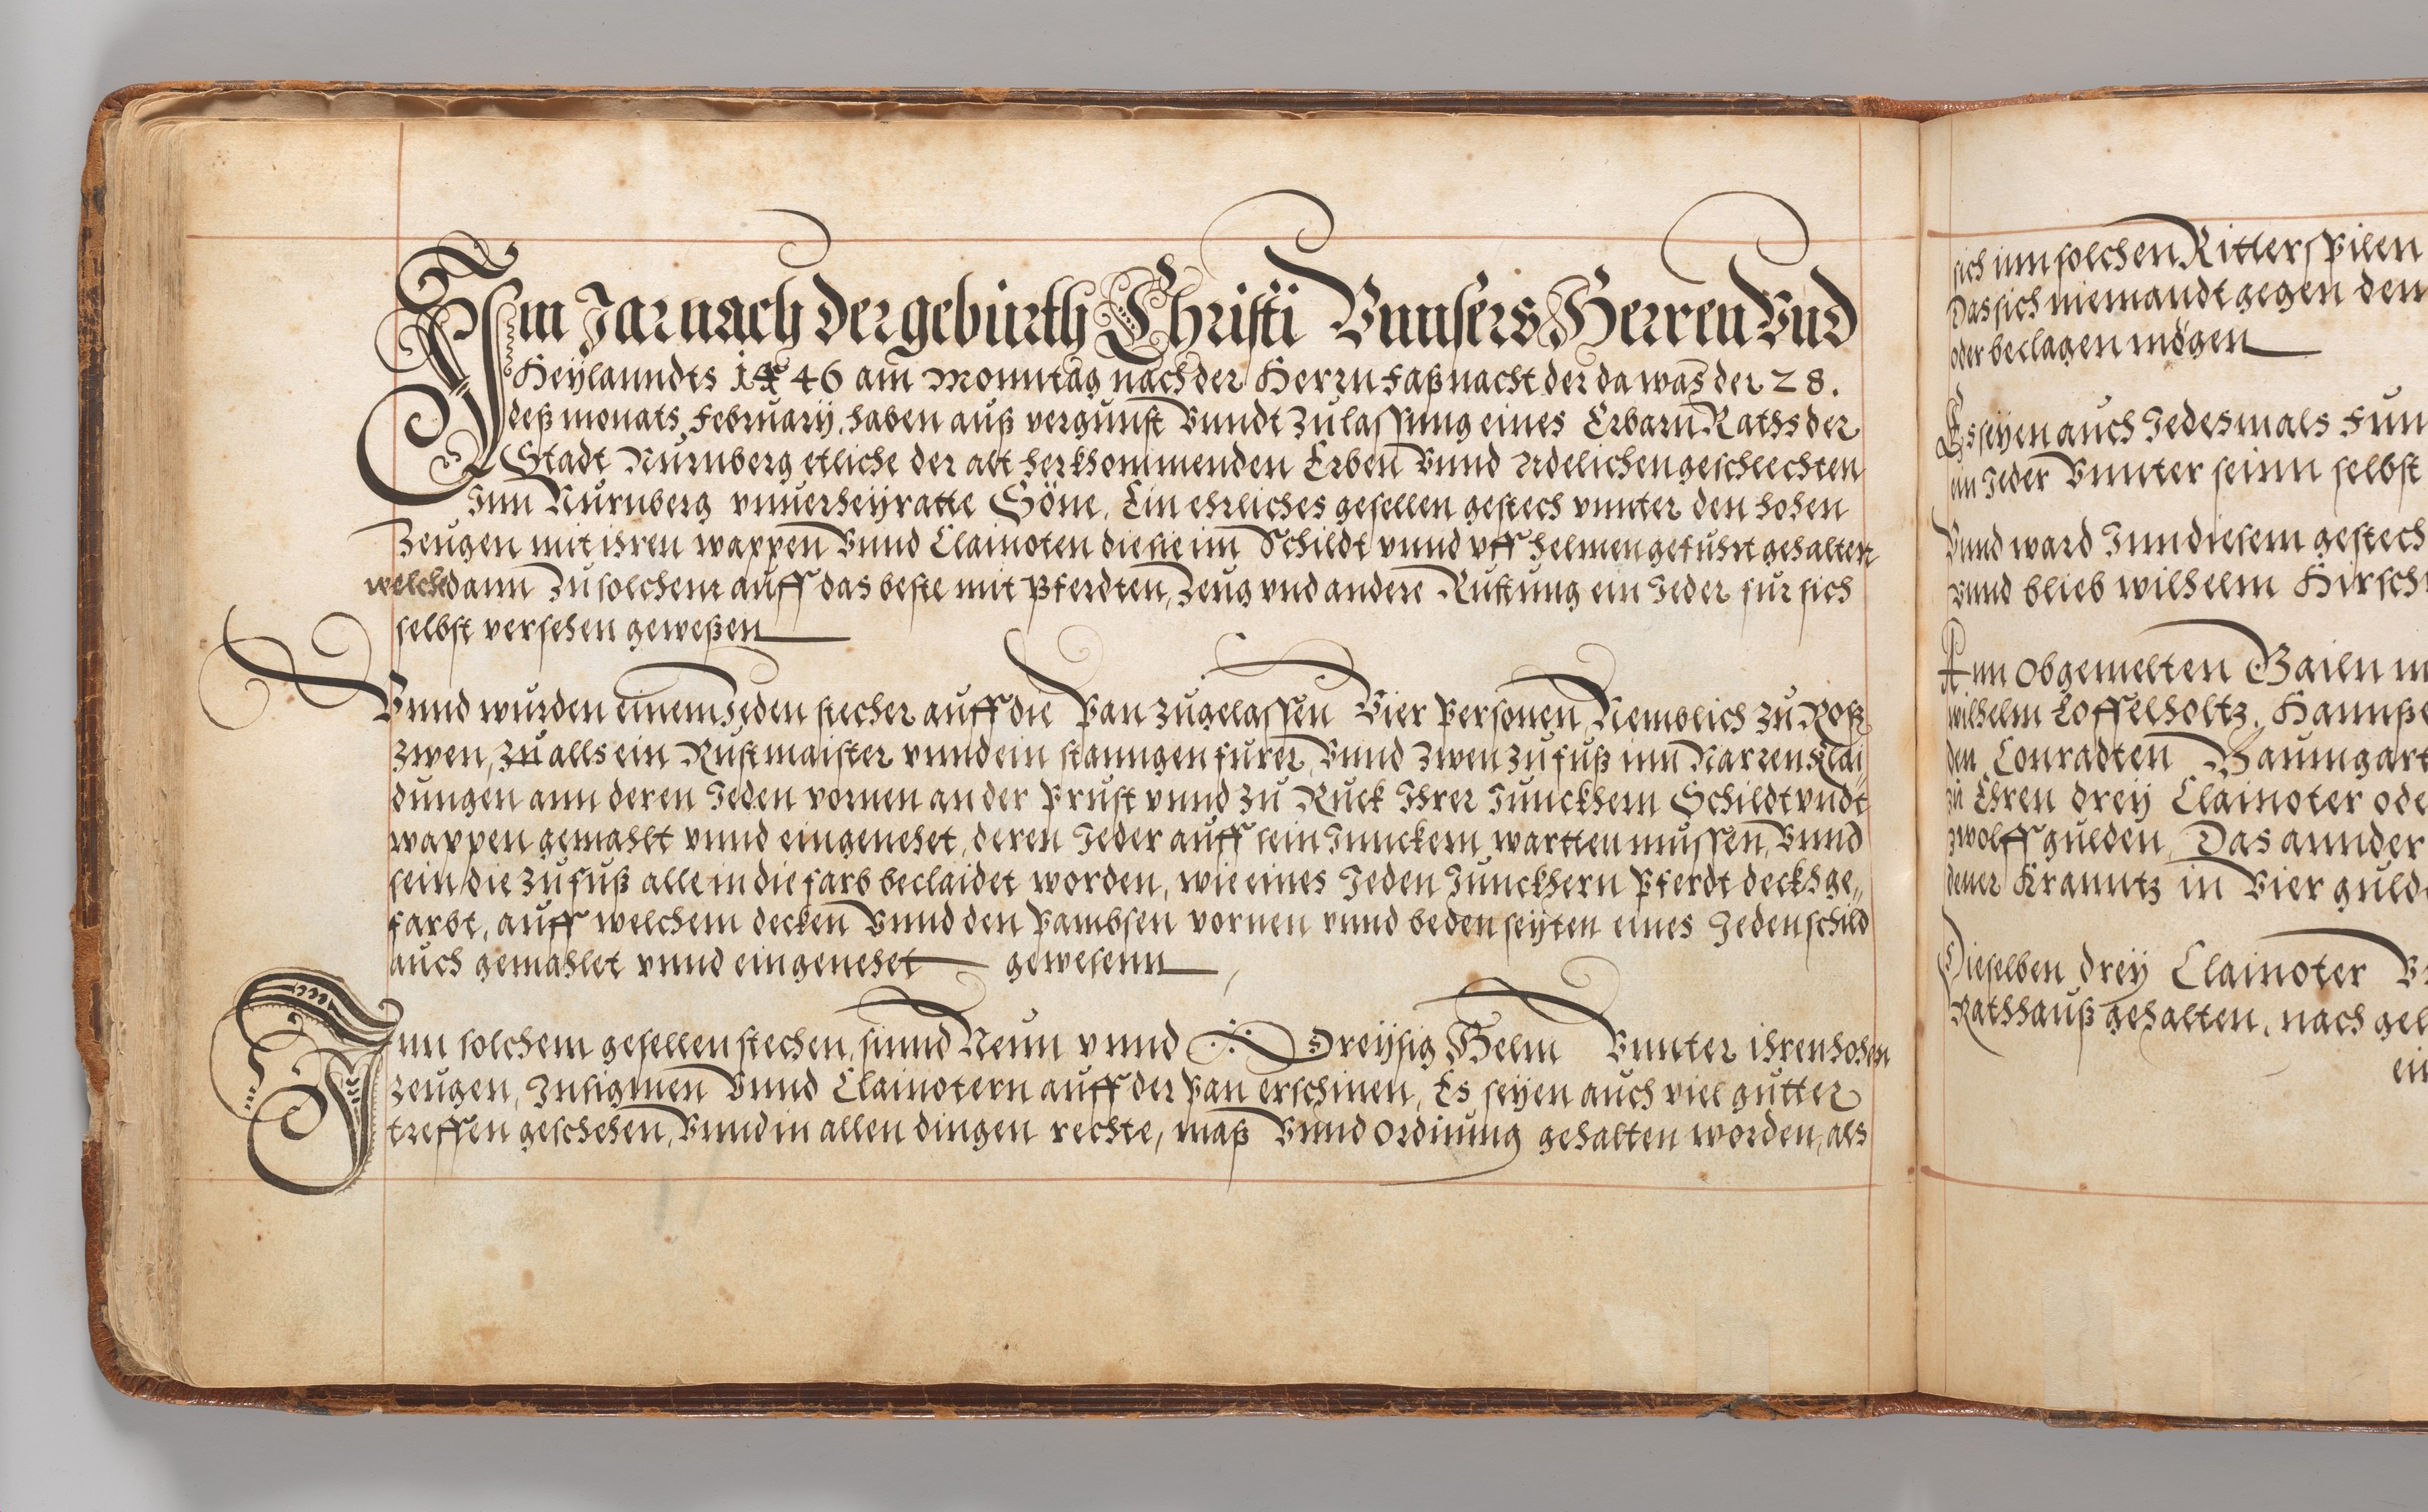 Im Jar nach der geburth Christi Vnnsers Herren Vnd
Heylanndts 1446 am Monntag nach der Herrn Faßnacht der da was der 28.
deß monats February, haben auß vergunst Vundt Zulassung eines Erbarn Raths der
Stadt Nurnberg etliche der alt herkhommenden Erben Vnnd Adelichen geschlechten
Inn Nurnberg vnuerheyratte Söne, Ein ehrliches gesellen gestech vnnter den hohen
Zeugen mit ihren wappen Vnnd Clainoten die sie im Schildt vnnd vff helmen gefuhrt gehalten
welche dann Zu solchem auff das beste mit Pferdten, Zeug vnd andere Rustung ein Jeder fur sich
selbst versehen geweßen
Vnnd wurden einem Jeden stecher auff die Pan zugelassen Vier Personen Nemblich zu Roß
zwen, zu alls ein Rustmaister vnnd ein stanngen furer, Vnnd zwen zu fuß inn Narren Klai-
dungen ann deren Jeden vornen an der Prust vnnd zu Ruck Ihrer Junckhern Schildt vndt
wappen gemahlt vnnd eingenehet, deren Jeder auff sein Junckern wartten mussen, Vnnd
sein die zu fuß alle in die farb beclaidet worden, wie eines Jeden Junckhern Pferdt deckh ge„
farbt, auff welchem decken Vnnd den Pambsen vornen vnnd beden seyten eines Jeden schild
auch gemahlet vnnd eingenehet gewesenn
Inn solchem gesellen stechen, sinnd Neun vnnd Dreyssig Helm Vnnter ihren hohen
zeugen, Insignien Vnnd Clainotern auff der Pan erschinen, Es seyen auch viel gutter
treffen geschehen, Vnnd in allen dingen rechte, maß Vnnd ordnung gehalten worden, als
sich inn solchen Ritterspilen
Das sich niemandt gegen den
oder beclagen mögen
Es seyen auch Jedesmals Fun
ein Jeder Vnnter seinn selbst
Vnnd ward Inn diesem gestech
Vnnd blieb wilhelm Hirsch
Ann obgemelten Gailn
wilhelm Loffelholtz, Hannße
den Conradten Baumgart
zu Ehren drey Clainoter ode
zwolff gulden, Das annder
dener Kranntz in Vier guld
Dieselben drey Clainoter
Rathhauß gehalten, nach gel
ein